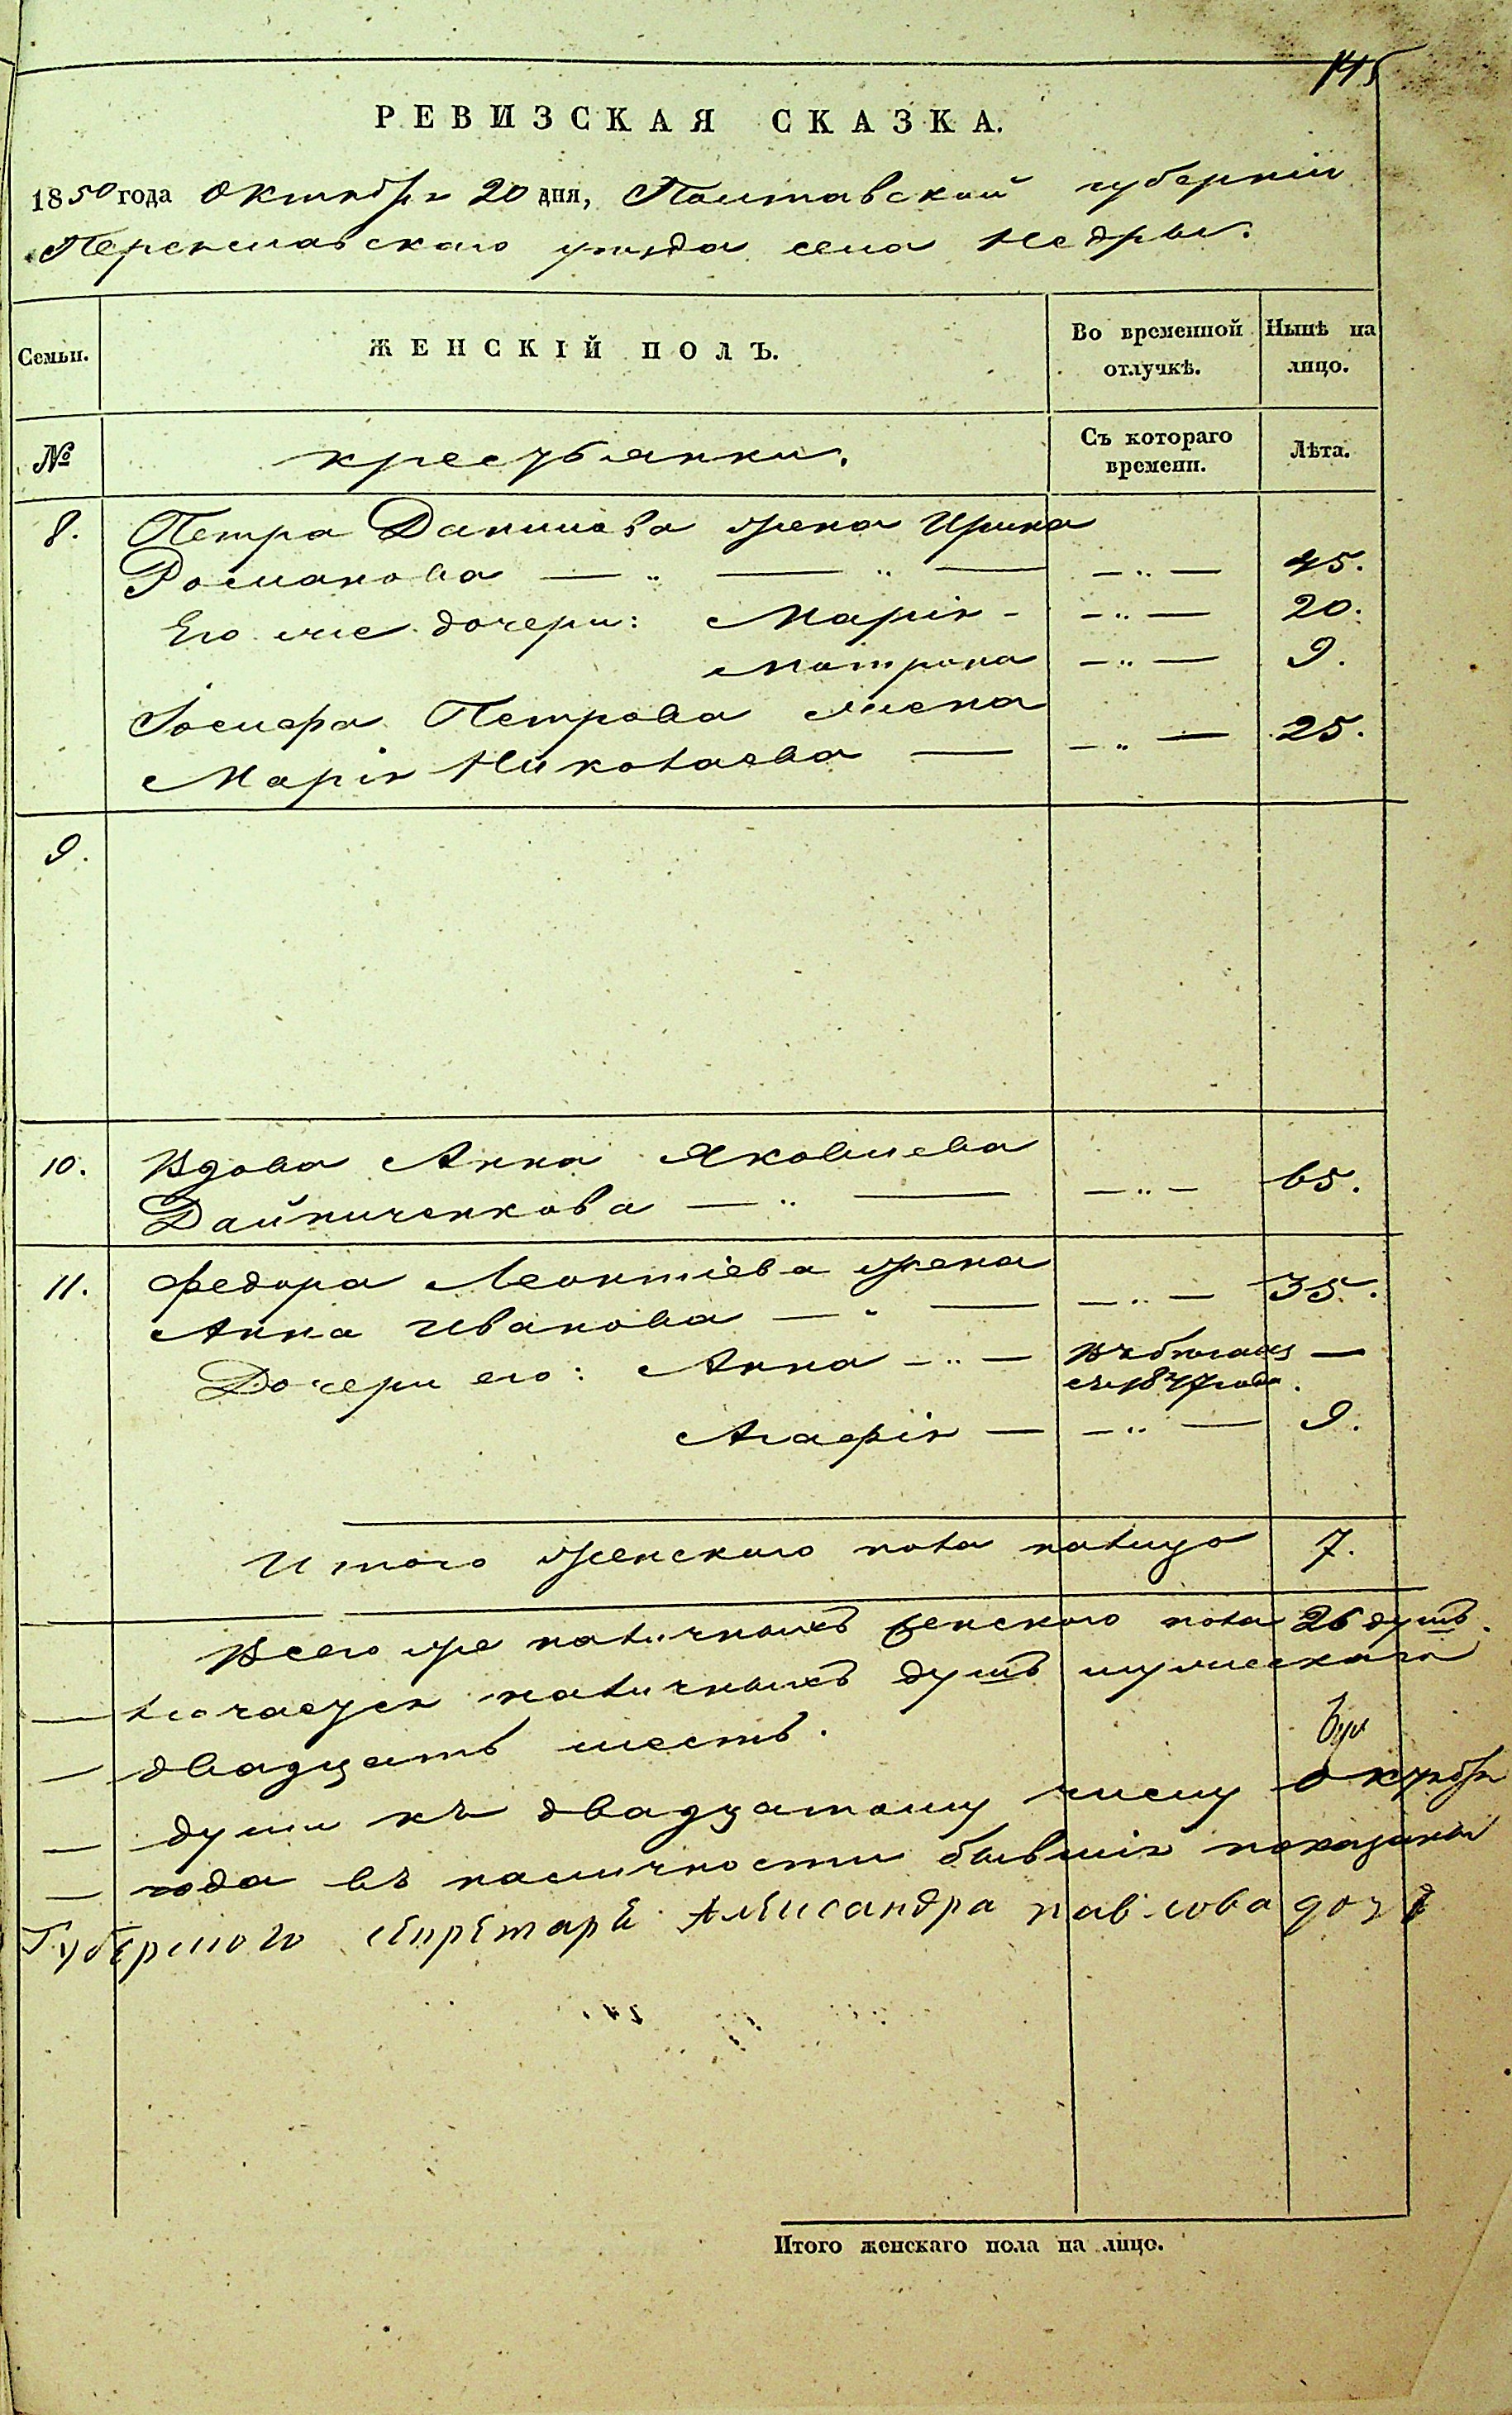 145
РЕВИЗСКАЯ СКАЗКА.
1850 года Октября 20 дня, Полтавской губерніи
Переяславскаго уѣзда села Недры.
Семьи. ЖЕНСКІЙ ПОЛЪ. Во временной отлучкѣ. Нынѣ на лицо.
№ крестьянки. Съ котораго времени. Лѣта.
8. Петра Данилова жена Ирина
Романова — " — " — — " — 45.
Его же дочери: Марія - — " — 20.
Матрона — " — 9.
Іосифа Петрова жена
Марія Николаева — — " — 25.
9.
10. Вдова Анна Яковлева
Дайниченкова — " — — " — 65.
11. Федора Леонтіева жена
Анна Иванова — " — — " — 35.
Дочери его: Анна — " — Въ бѣгахъ —
съ 1847 года.
Агафія — — " — 9.
Итого женскаго пола налицо 7.
Всего же наличныхъ женскаго пола 26 душъ.
наличныхъ душъ мужескаго
двадцать шесть.
души къ двадцатому числу октября
года въ наличности бывшія показаны
Губернского секретаря Александра Павлова
Итого женскаго пола на лицо.